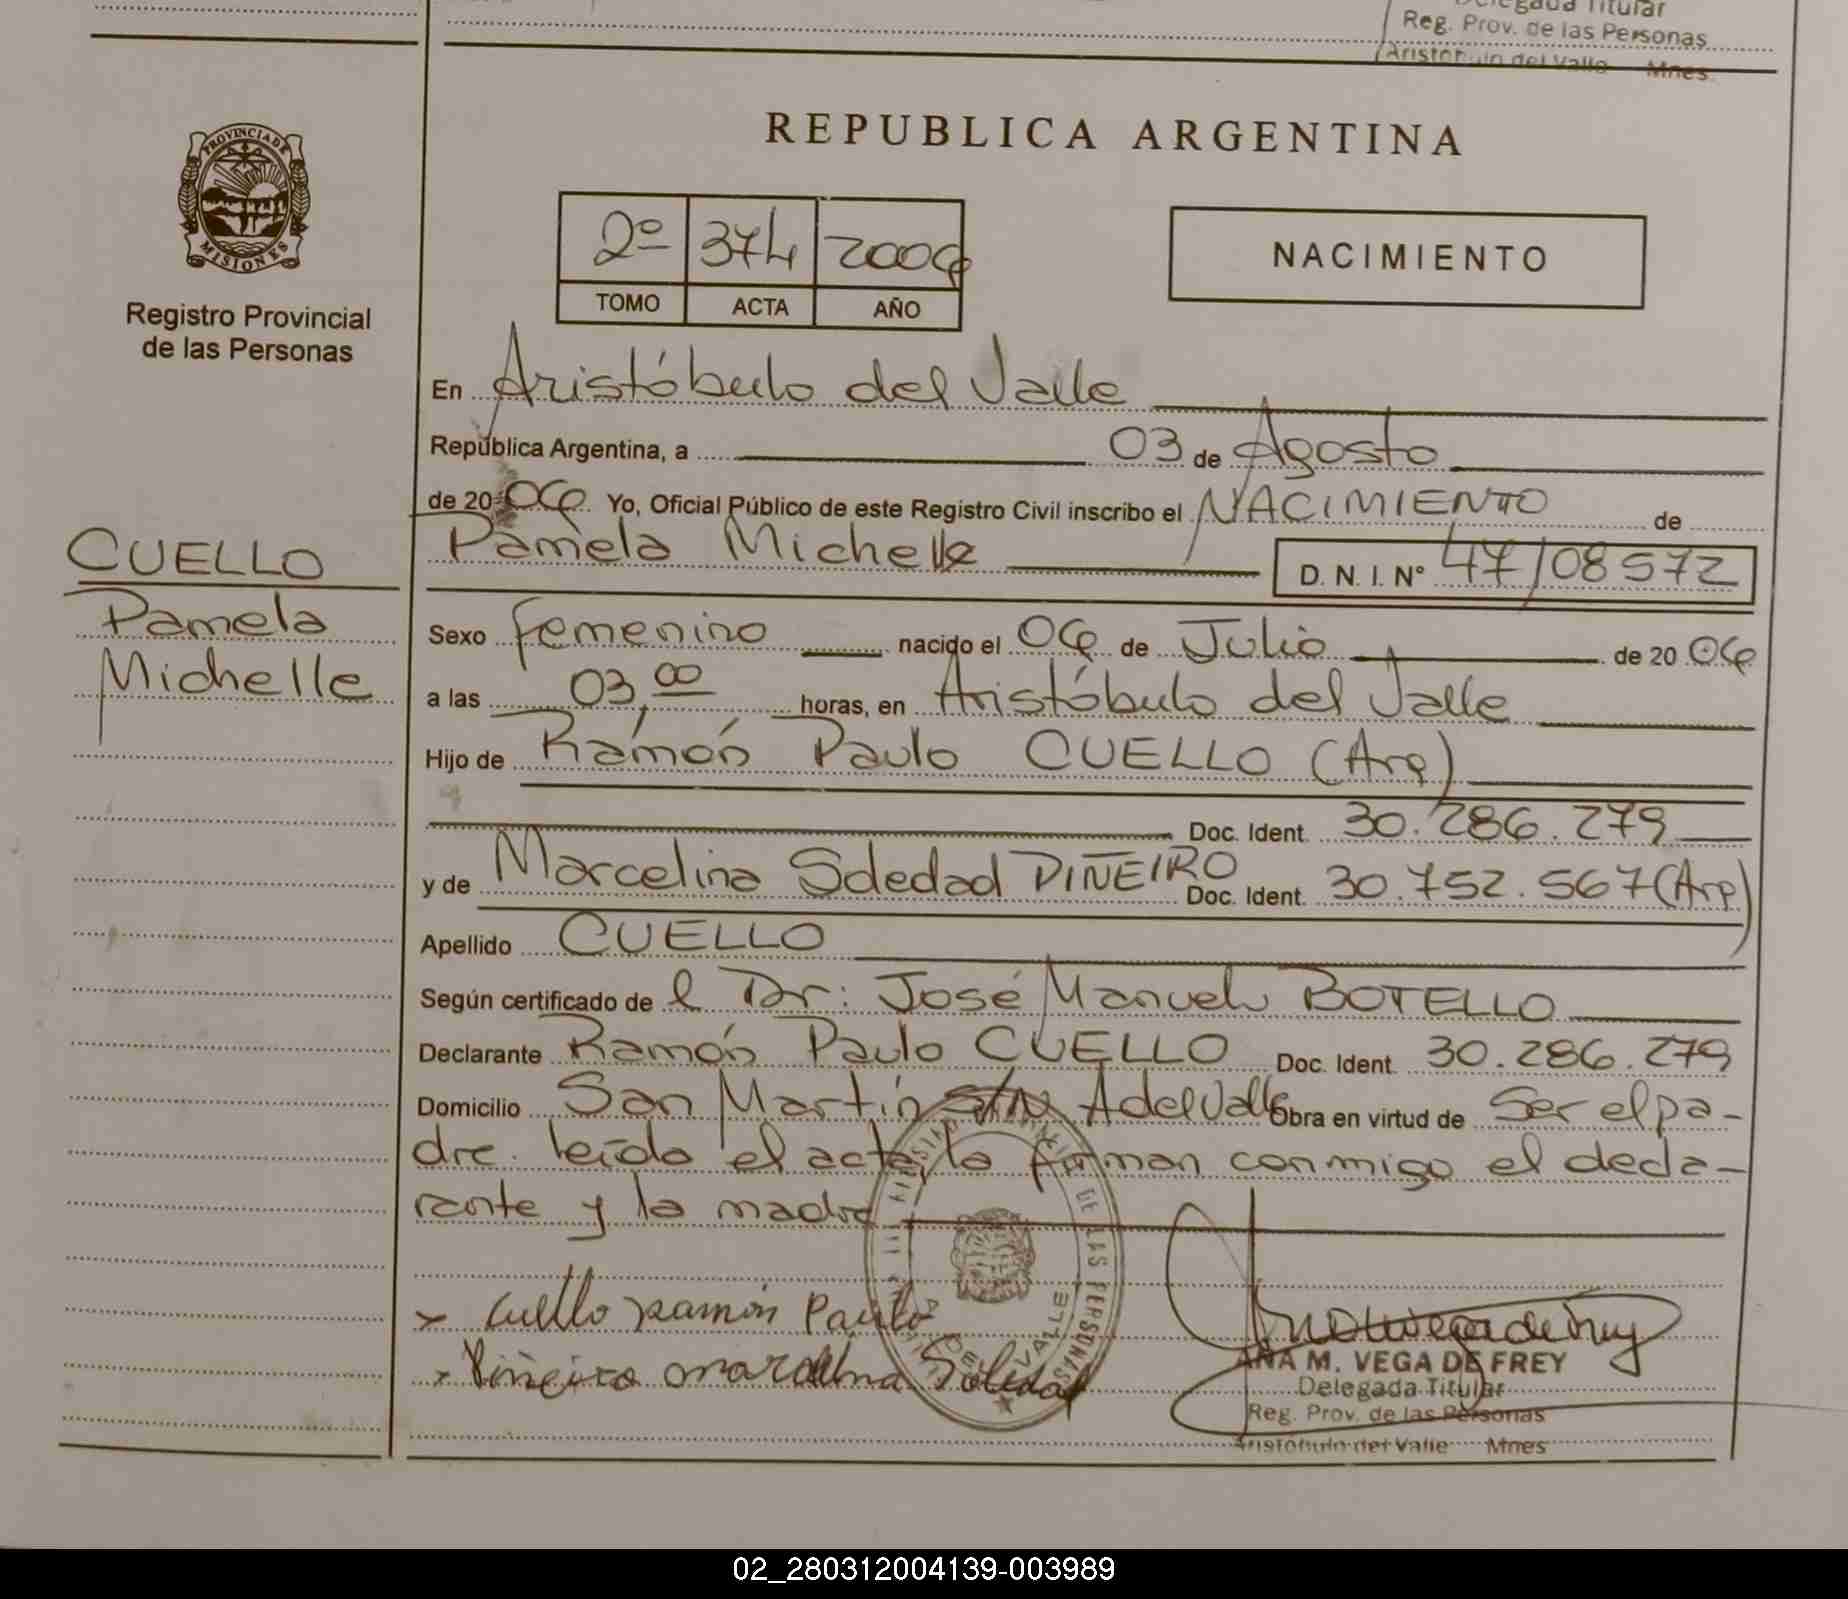 Delegada Titular
Reg. Prov. de las Personas
Aristóbulo del Valle Mnes.
PROVINCIA DE
MISIONES
Registro Provincial
de las Personas
CUELLO
Pamela
Michelle
REPUBLICA ARGENTINA
2º 374 2006
TOMO ACTA AÑO
NACIMIENTO
En Aristóbulo del Valle
República Argentina, a 03 de Agosto
de 20 06 Yo, Oficial Público de este Registro Civil inscribo el NACIMIENTO de
Pamela Michelle D. N. I. Nº 47/08572
Sexo femenino nacido el 06 de Julio de 20 06
a las 03,00 horas, en Aristóbulo del Valle
Hijo de Ramón Paulo CUELLO (Arg)
Doc. Ident. 30.286.279
y de Marcelina Soledad PIÑEIRO Doc. Ident. 30.752.567 (Arg)
Apellido CUELLO
Según certificado de l Dr: José Manuel BOTELLO
Declarante Ramón Paulo CUELLO Doc. Ident. 30.286.279
Domicilio San Martín s/n AdelValle Obra en virtud de Ser el pa-
dre. leído el acta, la firman conmigo el decla-
rante y la madre
x Cuello ramón Paulo
x Piñeiro marcelina Soledad
DE LAS PERSONAS
VALLE
ANA M. VEGA DE FREY
Delegada Titular
Reg. Prov. de las Personas
Aristóbulo del Valle Mnes
02_280312004139-003989